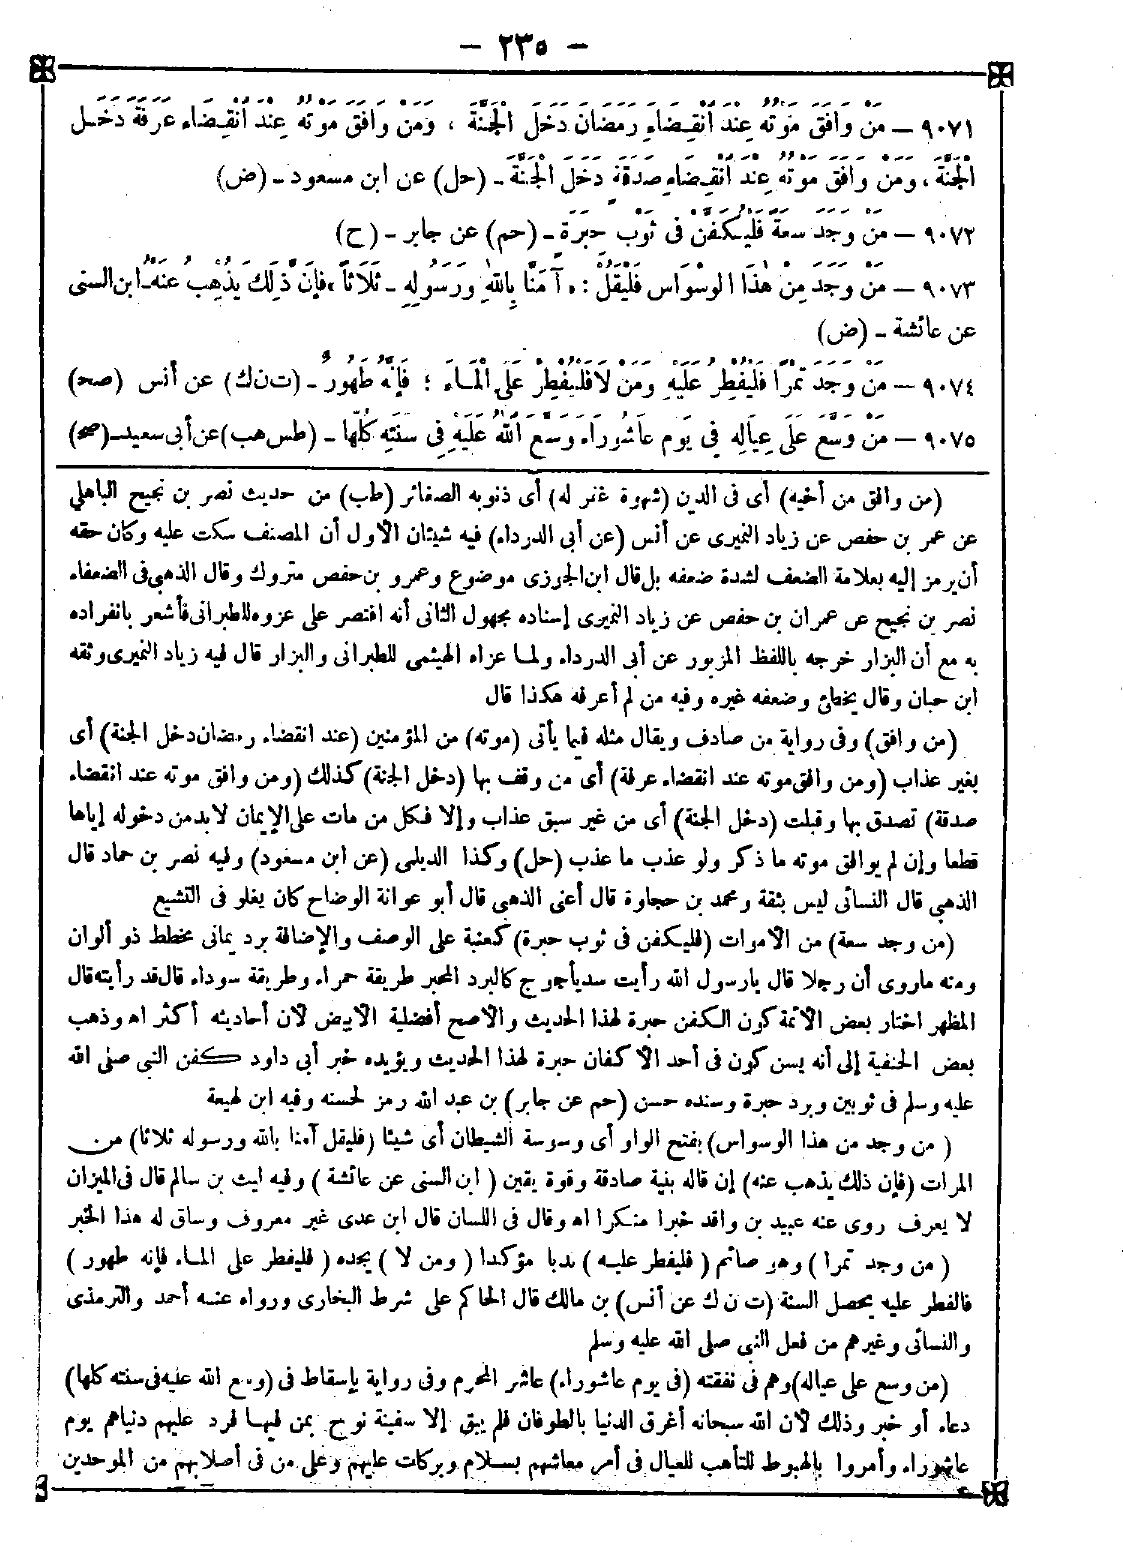 - ٢٣٥ -
٩٠٧١ - مَنْ وَافَقَ مَوْتُهُ عِنْدَ انْقِضَاءِ رَمَضَانَ دَخَلَ الْجَنَّةَ ، وَمَنْ وَافَقَ مَوْتُهُ عِنْدَ انْقِضَاءِ عَرَفَةَ دَخَلَ
الْجَنَّةَ ، وَمَنْ وَافَقَ مَوْتُهُ عِنْدَ انْقِضَاءِ صَدَقَةٍ دَخَلَ الْجَنَّةَ - (حل) عن ابن مسعود - (ض)
٩٠٧٢ - مَنْ وَجَدَ سَعَةً فَلْيُكَفَّنْ فِى ثَوْبِ حِبَرَةٍ - (حم) عن جابر - (ح)
٩٠٧٣ - مَنْ وَجَدَ مِنْ هٰذَا الْوَسْوَاسِ فَلْيَقُلْ : «آمَنَّا بِاللهِ وَرَسُولِهِ - ثَلَاثًا» فَإِنَّ ذٰلِكَ يَذْهَبُ عَنْهُ - ابن السنى
عن عائشة - (ض)
٩٠٧٤ - مَنْ وَجَدَ تَمْرًا فَلْيُفْطِرْ عَلَيْهِ وَمَنْ لَا فَلْيُفْطِرْ عَلَى الْمَاءِ ؛ فَإِنَّهُ طَهُورٌ - (ت ن ك) عن أنس (صح)
٩٠٧٥ - مَنْ وَسَّعَ عَلَى عِيَالِهِ فِى يَوْمِ عَاشُورَاءَ وَسَّعَ اللهُ عَلَيْهِ فِى سَنَتِهِ كُلِّهَا - (طس هب) عن أبى سعيد - (صح)
(من وافق من أخيه) أى فى الدين (شهوة غفر له) أى ذنوبه الصغائر (طب) من حديث نصر بن نجيح الباهلي
عن عمر بن حفص عن زياد النميرى عن أنس (عن أبى الدرداء) فيه شيئان الأول أن المصنف سكت عليه وكان حقه
أن يرمز إليه بعلامة الضعف لشدة ضعفه بل قال ابن الجوزى موضوع وعمرو بن حفص متروك وقال الذهبى فى الضعفاء
نصر بن نجيح عن عمران بن حفص عن زياد النميرى إسناده مجهول الثانى أنه اقتصر على عزوه للطبرانى فأشعر بانفراده
به مع أن البزار خرجه باللفظ المزبور عن أبى الدرداء ولما عزاه الهيثمى للطبرانى والبزار قال فيه زياد النميرى وثقه
ابن حبان وقال يخطئ وضعفه غيره وفيه من لم أعرفه هكذا قال
(من وافق) وفى رواية من صادف ويقال مثله فيما يأتى (موته) من المؤمنين (عند انقضاء رمضان دخل الجنة) أى
بغير عذاب (ومن وافق موته عند انقضاء عرفة) أى من وقف بها (دخل الجنة) كذلك (ومن وافق موته عند انقضاء
صدقة) تصدق بها وقبلت (دخل الجنة) أى من غير سبق عذاب وإلا فكل من مات على الإيمان لابد من دخوله إياها
قطعا وإن لم يوافق موته ما ذكر ولو عذب ما عذب (حل) وكذا الديلمى (عن ابن مسعود) وفيه نصر بن حماد قال
الذهبى قال النسائى ليس بثقة ومحمد بن حجاوة قال أعنى الذهبى قال أبو عوانة الوضاح كان يغلو فى التشيع
(من وجد سعة) من الأموات (فليكفن فى ثوب حبرة) كعنبة على الوصف والإضافة برد يمانى مخطط ذو ألوان
ومنه ماروى أن رجلا قال يارسول الله رأيت سد يأجوج كالبرد المحبر طريقة حمراء وطريقة سوداء قال قد رأيته قال
المظهر اختار بعض الأئمة كون الكفن حبرة لهذا الحديث والأصح أفضلية الأبيض لأن أحاديثه أكثر اه وذهب
بعض الحنفية إلى أنه يسن كون فى أحد الأكفان حبرة لهذا الحديث ويؤيده خبر أبى داود كفن النبى صلى الله
عليه وسلم فى ثوبين وبرد حبرة وسنده حسن (حم عن جابر) بن عبد الله رمز لحسنه وفيه ابن لهيعة
(من وجد من هذا الوسواس) بفتح الواو أى وسوسة الشيطان أى شيئا (فليقل آمنا بالله ورسوله ثلاثا) من
المرات (فإن ذلك يذهب عنه) إن قاله بنية صادقة وقوة يقين (ابن السنى عن عائشة) وفيه ليث بن سالم قال فى الميزان
لا يعرف روى عنه عبيد بن واقد خبرا منكرا اه وقال فى اللسان قال ابن عدى غير معروف وساق له هذا الخبر
(من وجد تمرا) وهو صائم (فليفطر عليه) ندبا مؤكدا (ومن لا) يجده (فليفطر على الماء فإنه طهور)
فالفطر عليه يحصل السنة (ت ن ك عن أنس) بن مالك قال الحاكم على شرط البخارى ورواه عنه أحمد والترمذى
والنسائى وغيرهم من فعل النبى صلى الله عليه وسلم
(من وسع على عياله) وهم فى نفقته (فى يوم عاشوراء) عاشر المحرم وفى رواية بإسقاط فى (وسع الله عليه فى سنته كلها)
دعاء أو خبر وذلك لأن الله سبحانه أغرق الدنيا بالطوفان فلم يبق إلا سفينة نوح بمن فيها فرد عليهم دنياهم يوم
عاشوراء وأمروا بالهبوط للتأهب للعيال فى أمر معاشهم بسلام وبركات عليهم وعلى من فى أصلابهم من الموحدين